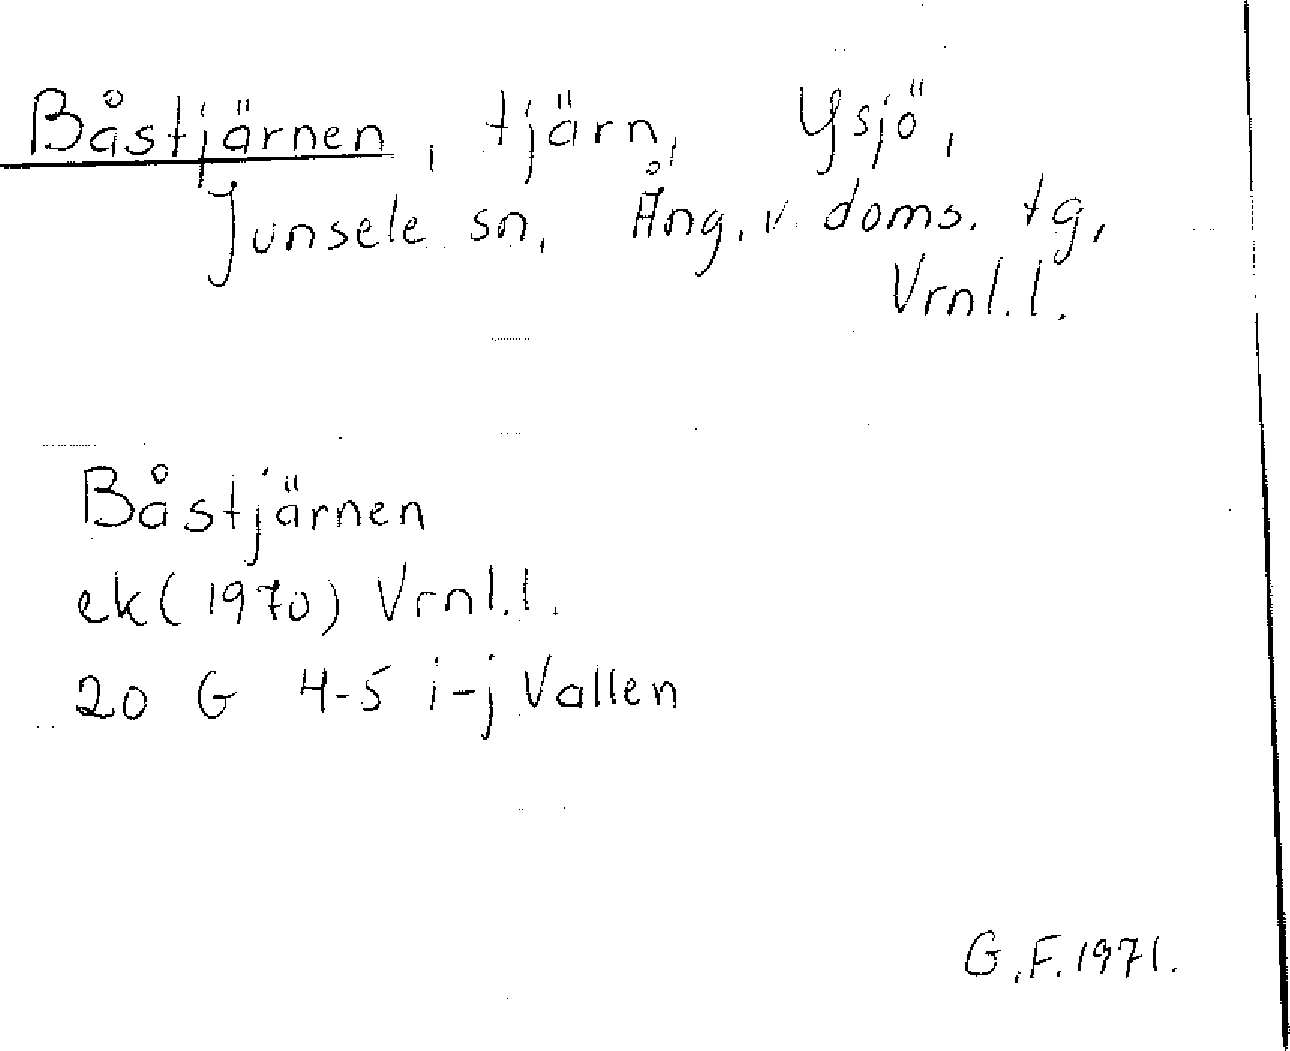 Båstjärnen, tjärn, Ysjö,
Junsele sn, Ång. v. doms. tg,
Vrnl.l.
Båstjärnen
ek (1970) Vrnl.l.
20 G 4-5 i-j Vallen
G.F. 1971.